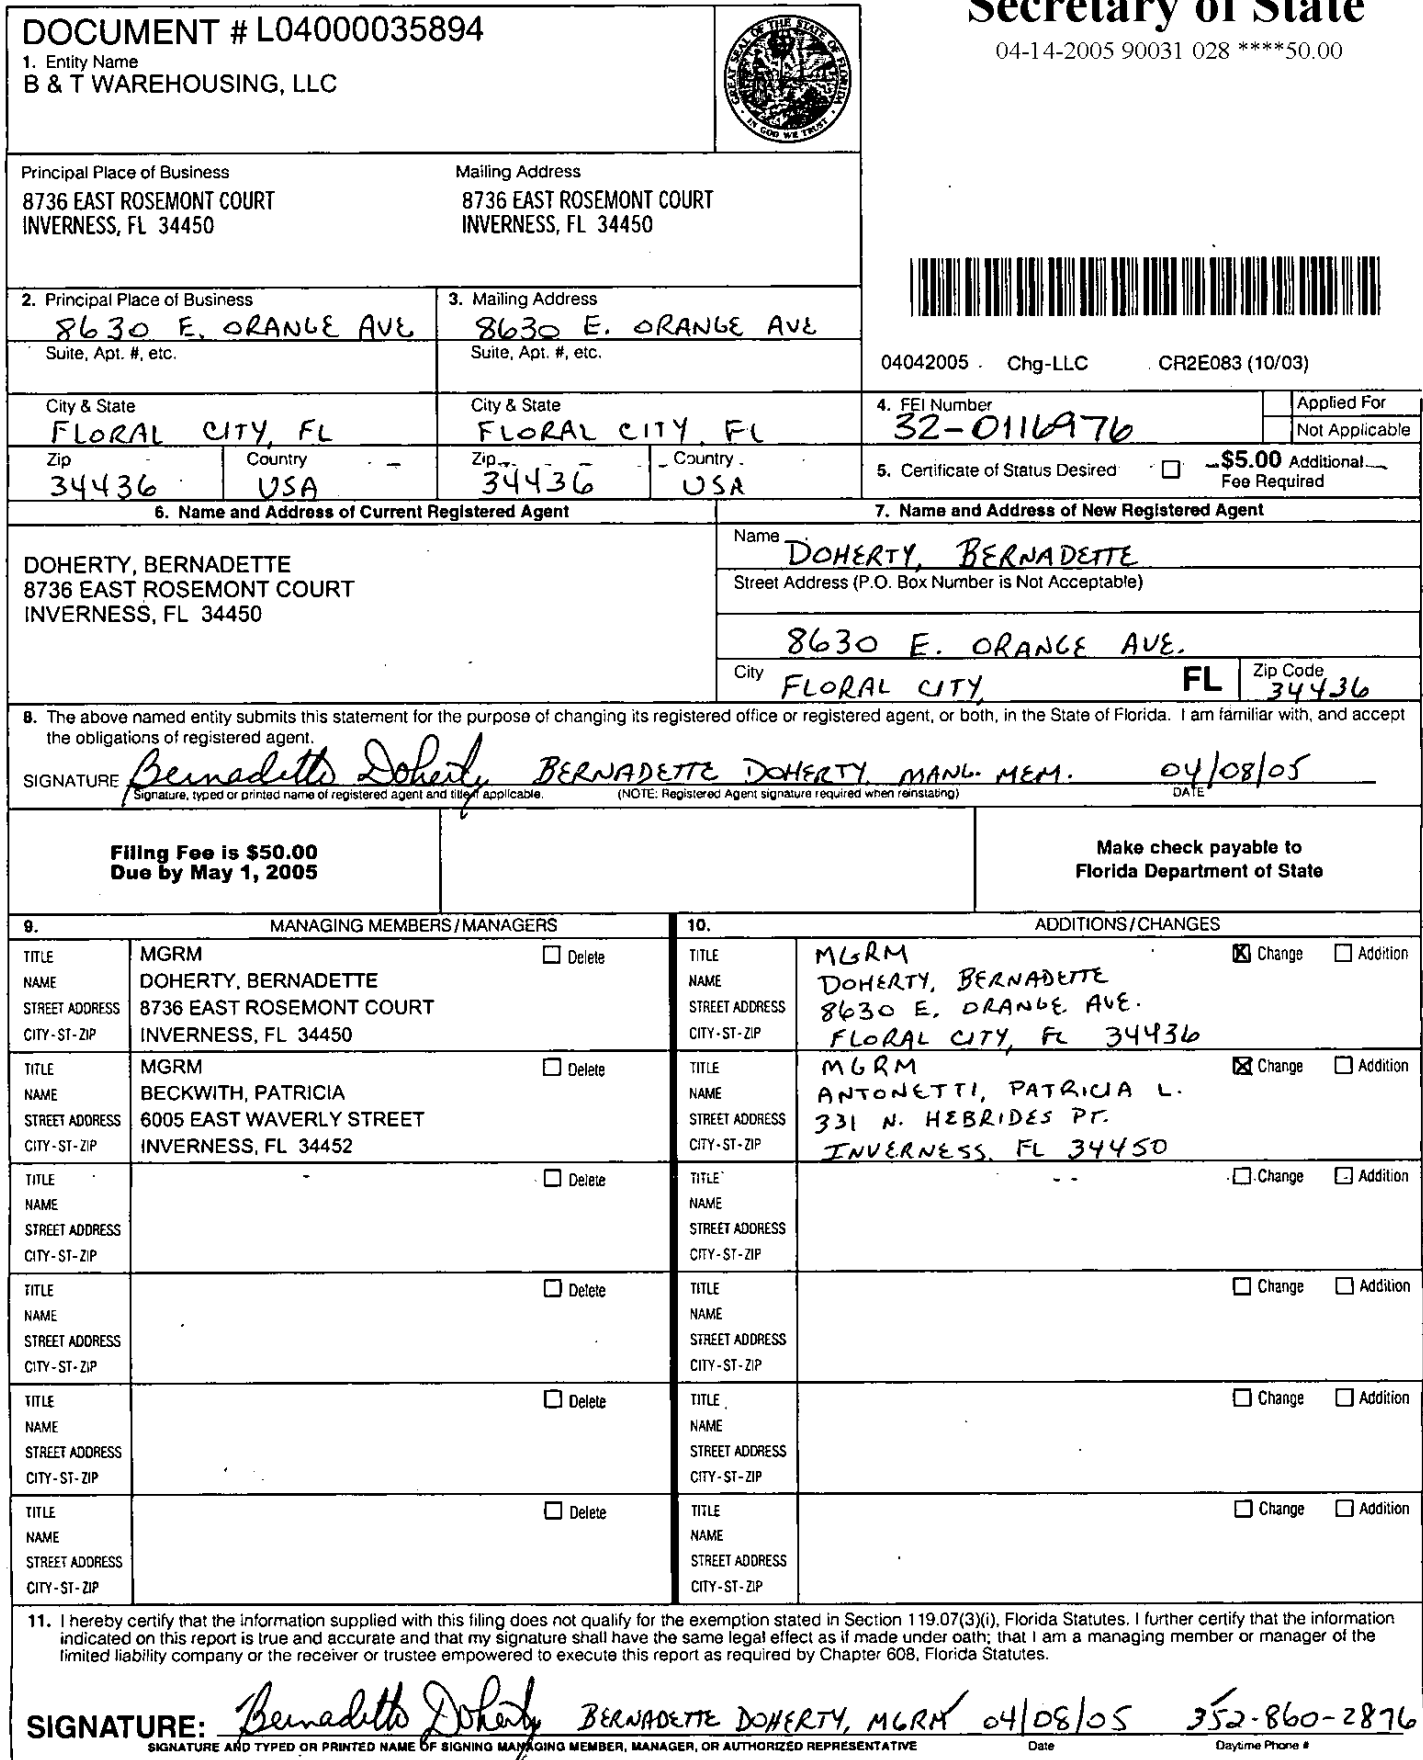 Secretary of State
04-14-2005 90031 028 ****50.00
DOCUMENT # L04000035894
1. Entity Name
B & T WAREHOUSING, LLC
GREAT SEAL OF THE STATE OF FLORIDA
IN GOD WE TRUST
Principal Place of Business
8736 EAST ROSEMONT COURT
INVERNESS, FL 34450
Mailing Address
8736 EAST ROSEMONT COURT
INVERNESS, FL 34450
2. Principal Place of Business
8630 E. ORANGE AVE
Suite, Apt. #, etc.
3. Mailing Address
8630 E. ORANGE AVE
Suite, Apt. #, etc.
04042005 Chg-LLC CR2E083 (10/03)
City & State
FLORAL CITY, FL
City & State
FLORAL CITY, FL
4. FEI Number
32-0116976
Applied For
Not Applicable
Zip
34436
Country
USA
Zip
34436
Country
USA
5. Certificate of Status Desired
$5.00 Additional
Fee Required
6. Name and Address of Current Registered Agent
DOHERTY, BERNADETTE
8736 EAST ROSEMONT COURT
INVERNESS, FL 34450
7. Name and Address of New Registered Agent
Name DOHERTY, BERNADETTE
Street Address (P.O. Box Number is Not Acceptable)
8630 E. ORANGE AVE.
City FLORAL CITY, FL Zip Code 34436
8. The above named entity submits this statement for the purpose of changing its registered office or registered agent, or both, in the State of Florida. I am familiar with, and accept
the obligations of registered agent.
SIGNATURE Bernadette Doherty BERNADETTE DOHERTY, MANG. MEM. 04/08/05
Signature, typed or printed name of registered agent and title if applicable. (NOTE: Registered Agent signature required when reinstating) DATE
Filing Fee is $50.00
Due by May 1, 2005
Make check payable to
Florida Department of State
9. MANAGING MEMBERS/MANAGERS
10. ADDITIONS/CHANGES
TITLE MGRM Delete
NAME DOHERTY, BERNADETTE
STREET ADDRESS 8736 EAST ROSEMONT COURT
CITY-ST-ZIP INVERNESS, FL 34450
TITLE MGRM X Change Addition
NAME DOHERTY, BERNADETTE
STREET ADDRESS 8630 E. ORANGE AVE.
CITY-ST-ZIP FLORAL CITY, FL 34436
TITLE MGRM Delete
NAME BECKWITH, PATRICIA
STREET ADDRESS 6005 EAST WAVERLY STREET
CITY-ST-ZIP INVERNESS, FL 34452
TITLE MGRM X Change Addition
NAME ANTONETTI, PATRICIA L.
STREET ADDRESS 331 N. HEBRIDES PT.
CITY-ST-ZIP INVERNESS, FL 34450
TITLE Delete
NAME
STREET ADDRESS
CITY-ST-ZIP
TITLE Change Addition
NAME
STREET ADDRESS
CITY-ST-ZIP
TITLE Delete
NAME
STREET ADDRESS
CITY-ST-ZIP
TITLE Change Addition
NAME
STREET ADDRESS
CITY-ST-ZIP
TITLE Delete
NAME
STREET ADDRESS
CITY-ST-ZIP
TITLE Change Addition
NAME
STREET ADDRESS
CITY-ST-ZIP
TITLE Delete
NAME
STREET ADDRESS
CITY-ST-ZIP
TITLE Change Addition
NAME
STREET ADDRESS
CITY-ST-ZIP
11. I hereby certify that the information supplied with this filing does not qualify for the exemption stated in Section 119.07(3)(i), Florida Statutes. I further certify that the information
indicated on this report is true and accurate and that my signature shall have the same legal effect as if made under oath; that I am a managing member or manager of the
limited liability company or the receiver or trustee empowered to execute this report as required by Chapter 608, Florida Statutes.
SIGNATURE: Bernadette Doherty BERNADETTE DOHERTY, MGRM 04/08/05 352-860-2876
SIGNATURE AND TYPED OR PRINTED NAME OF SIGNING MANAGING MEMBER, MANAGER, OR AUTHORIZED REPRESENTATIVE Date Daytime Phone #